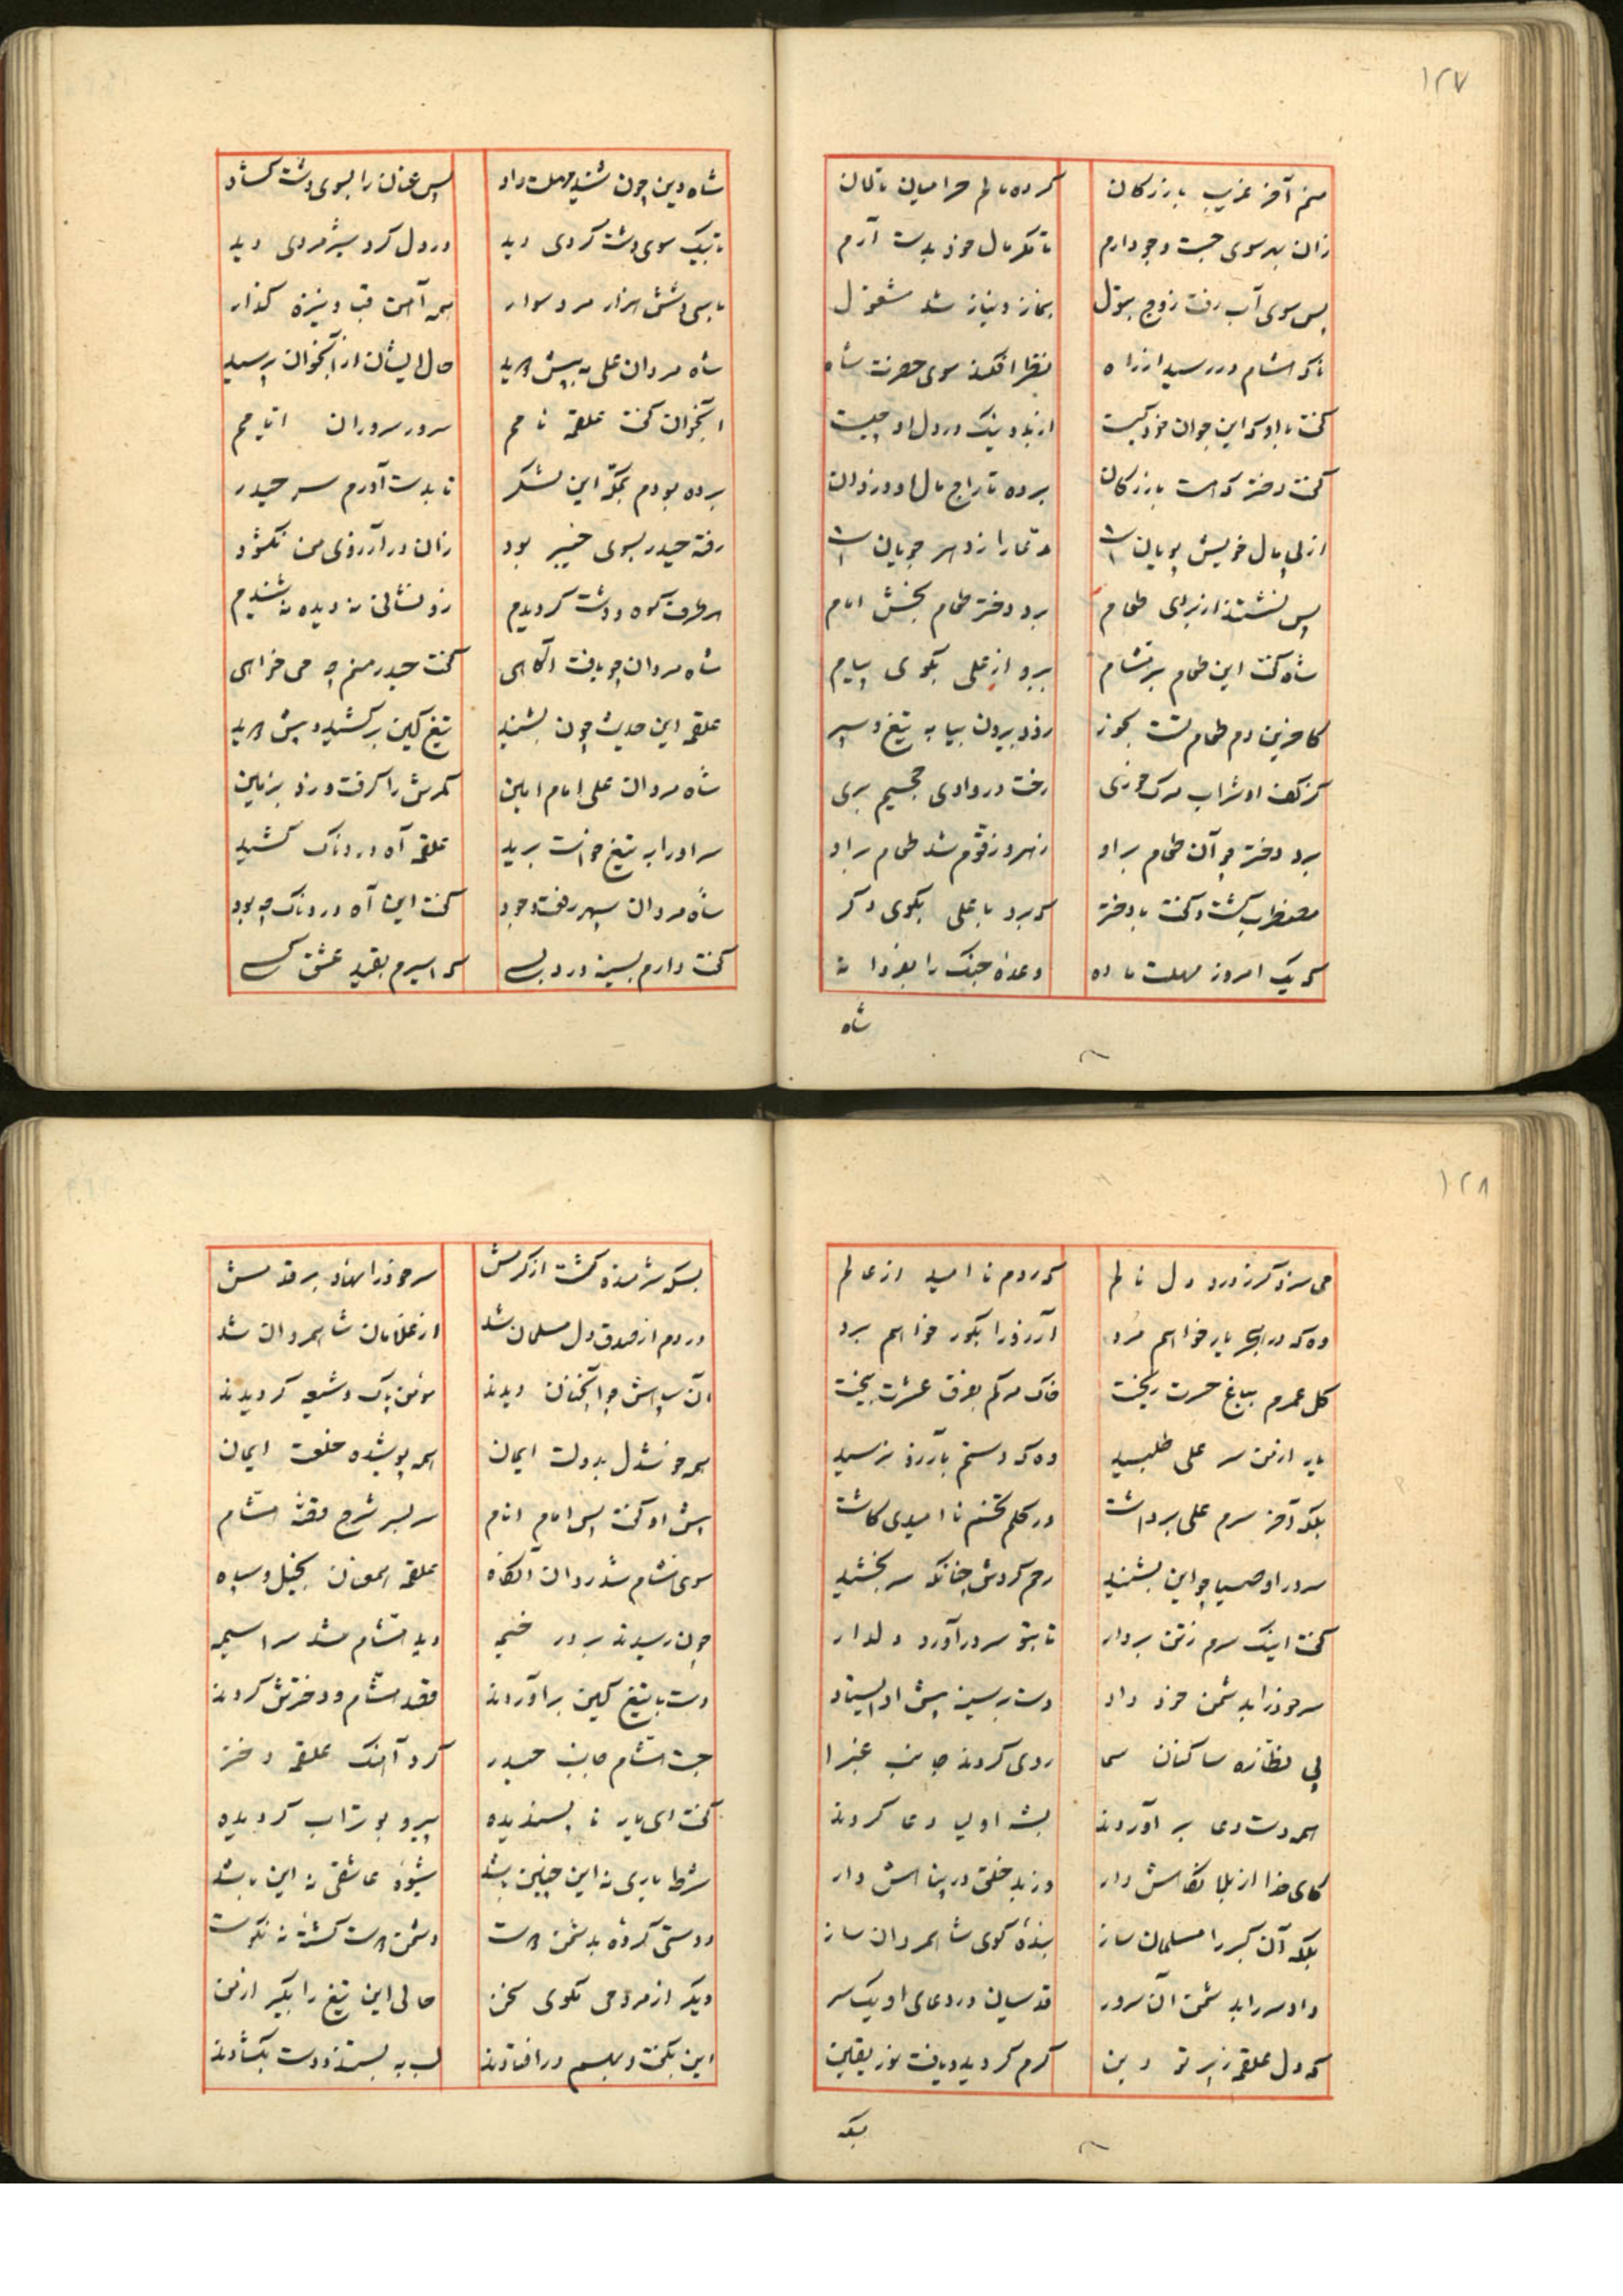 ۱۲۷
منم آخر غریب بازرکان کرده مالم حرامیان تالان
زان بهر سوی جست و جو دارم تا مکر مال خود بدست آرم
پس سوی آب رفت زوج بتول بنماز و نیاز شد مشغول
ناکه هشام در رسید از راه نظر افکند سوی حضرت شاه
کفت با او که این جوان خود کیست از بد و نیک در دل او چیست
کفت دختر که هست بازرکان برده تاراج مال او دزدان
از پی مال خویش پویان است
پس نشستند از برای طعام برد دختر طعام بخش امام
شاه کفت این طعام بر هشام ببرو از علی بکوی پیام
کافرین دم طعام تست بخور زود بیرون بیا به تیغ و سپر
کز کف او شراب مرک خوری رخت در وادی جحیم بری
برد دختر چو آن طعام بر او زهر و زقوم شد طعام بر او
مضطرب کشت و کفت با دختر که برو با علی بکوی دکر
که یک امروز مهلت ما ده وعده جنک را بفردا نه
شاه
شاه دین چون شنید مهلت داد پس عنان را بسوی دشت کشاد
تا بیک سوی دشت کردی دید در دل کرد شیرمردی دید
با سی و شش هزار مرد سوار همه آهن قبا و نیزه کذار
شاه مردان علی به پیش دوید حال ایشان از آنجوان پرسید
آنجوان کفت علقمه نامم سرور سروران ایامم
برده بودم بمکه این لشکر تا بدست آورم سر حیدر
رفته حیدر بسوی خیبر بود زان در آرزوی من نکشود
هر طرف کوه و دشت کردیدم زو نشانی نه دیده نه شنیدم
شاه مردان چو یافت آکاهی کفت حیدر منم چه می خواهی
علقمه این حدیث چون بشنید تیغ کین برکشید و پیش دوید
شاه مردان علی امام امین کمرش را کرفت و زد بزمین
سر او را به تیغ خواست برید علقمه آه دردناک کشید
شاه مردان سپهر رفعت و جود کفت این آه دردناک چه بود
کفت دارم بسینه درد بسی که اسیرم بقید عشق کسی
۱۲۸
می سزد کر ز درد دل نالم که روم نا امید از عالم
وه که در هجر یار خواهم مرد آرزو را بکور خواهم برد
کل عمرم بباغ حسرت ریخت خاک مرکم بفرق عشرت بیخت
یار از من سر علی طلبید وه که دستم بآرزو نرسید
بلکه آخر سرم علی برداشت در کلم تخم نا امیدی کاشت
سرور اوصیا چو این بشنید رحم کردش چنانکه سر بخشید
کفت اینک سرم ز تن بردار تا بتو سر در آورد دلدار
سر خود را بدشمن خود داد دست بر سینه پیش او ایستاد
پی نظاره ساکنان سما روی کردند جانب غبرا
همه دست دعا بر آوردند بشه اولیا دعا کردند
کای خدا از بلا نکاهش دار وز بد خلق در پناهش دار
بلکه آن کبر را مسلمان ساز بنده کوی شاهمردان ساز
داد سر را بدشمن آن سرور قدسیان در دعای او یکسر
که دل علقمه ز پرتو دین کرم کردید و یافت نور یقین
بسکه
بسکه شرمنده کشت از کرمش سر خود را نهاد بر قدمش
در دم از صدق دل مسلمان شد از غلامان شاهمردان شد
آن سپاهش چو آنچنان دیدند مؤمن پاک و شیعه کردیدند
همه خوشدل بدولت ایمان همه پوشیده خلعت ایمان
پیش او کفت پس امام انام سر بسر شرح قصه هشام
سوی هشام شد روان آنکاه علقمه همعنان بخیل و سپاه
چون رسیدند بر در خیمه دید هشام شد سراسیمه
دست با تیغ کین بر آوردند قصد هشام و دخترش کردند
جست هشام جانب حیدر کرد آهنک علقمه دختر
کفت ای یار نا پسندیده پیرو بوتراب کردیده
شرط یاری نه این چنین باشد شیوه عاشقی نه این باشد
دوستی کرده بدشمن دوست دشمن دوست کشته نه نکوست
دیکر از مردمی مکوی سخن حالی این تیغ را بکیر از من
این بکفت و بهم در افتادند لب به بستند و دست بکشادند